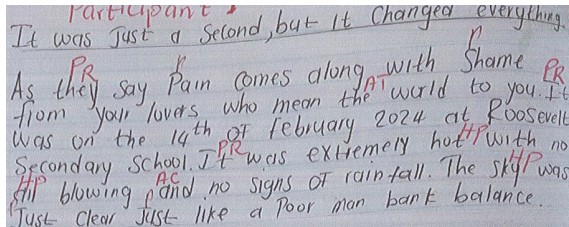 Participant
It was Just a Second, but it Changed everything.
As they say Pain Comes along with Shame
from your lovers who mean the world to you. It
was on the 14th of february 2024 at Roosevelt
Secondary School. It was extremely hot with no
air blowing and no signs of rainfall. The sky was
Just Clear Just like a Poor man bank balance.